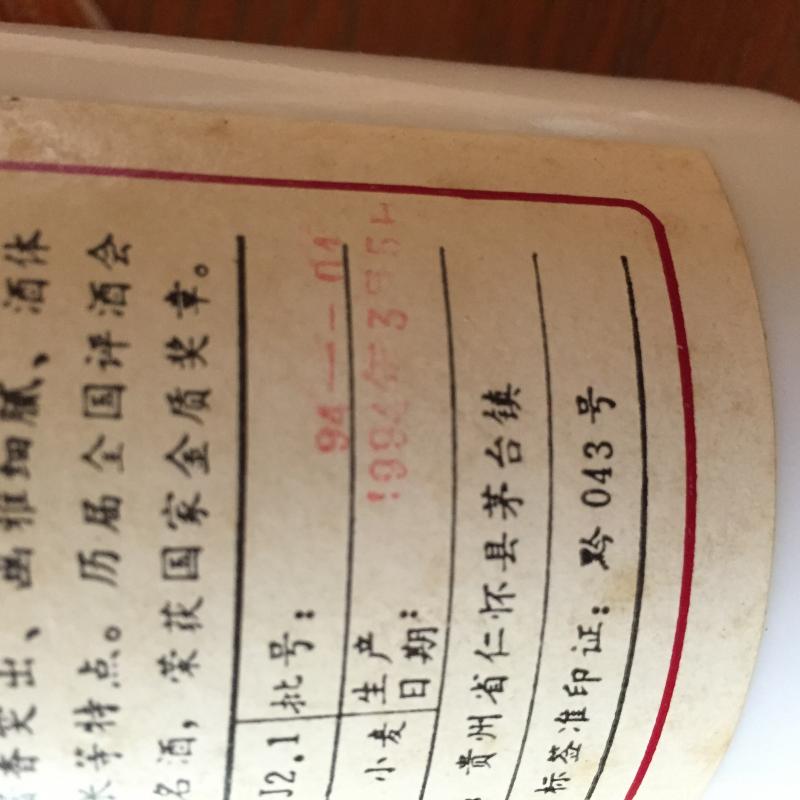 酒体
细腻、
突出、
历届全国评酒会
等特点。
名酒，荣获国家金质奖章。
批号：94-01
J2.1
生产日期：1994年3月
小麦
贵州省仁怀县茅台镇
标签准印证：黔043号